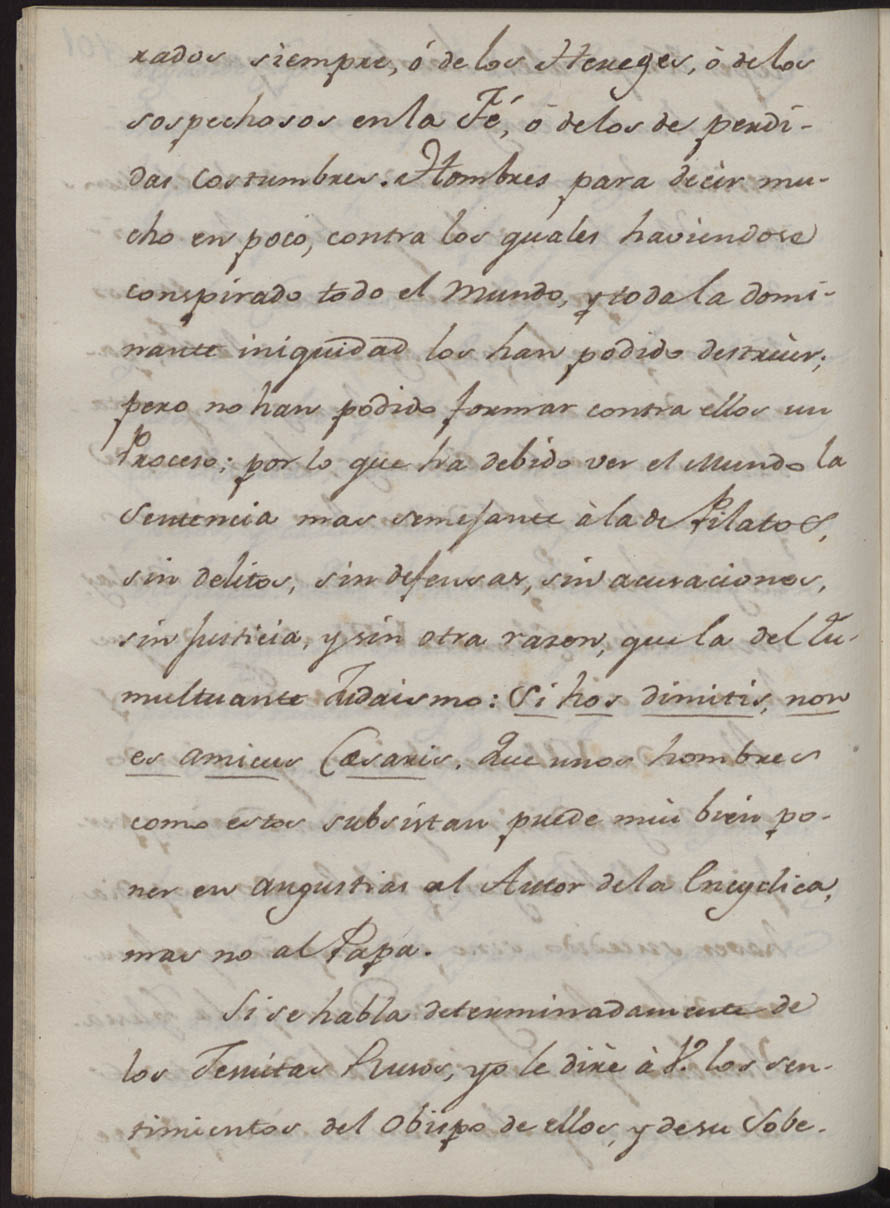 rados siempre, ó de los Hereges, ò de los
sospechosos en la Fé, ò de los de perdi-
das costumbres. Hombres para decir mu-
cho en poco, contra los quales haviendose
conspirado todo el Mundo, y toda la domi-
nante iniquidad los han podido destruir;
pero no han podido formar contra ellos un
Proceso; por lo que ha debido ver el Mundo la
Sentencia mas semejante à la de Pilatos,
sin delitos, sin defensas, sin acusaciones,
sin Justicia, y sin otra razon, que la del Tu-
multuante Judaismo: Si hos dimitis, non
es amicus Cæsaris. Que unos hombres
como estos subsistan puede mui bien po-
ner en angustias al Autor de la Encyclica,
mas no al Papa.
Si se habla determinadamente de
los Jesuitas Rusos, yo le dirè à V. los sen-
timientos del Obispo de ellos, y de su Sobe-